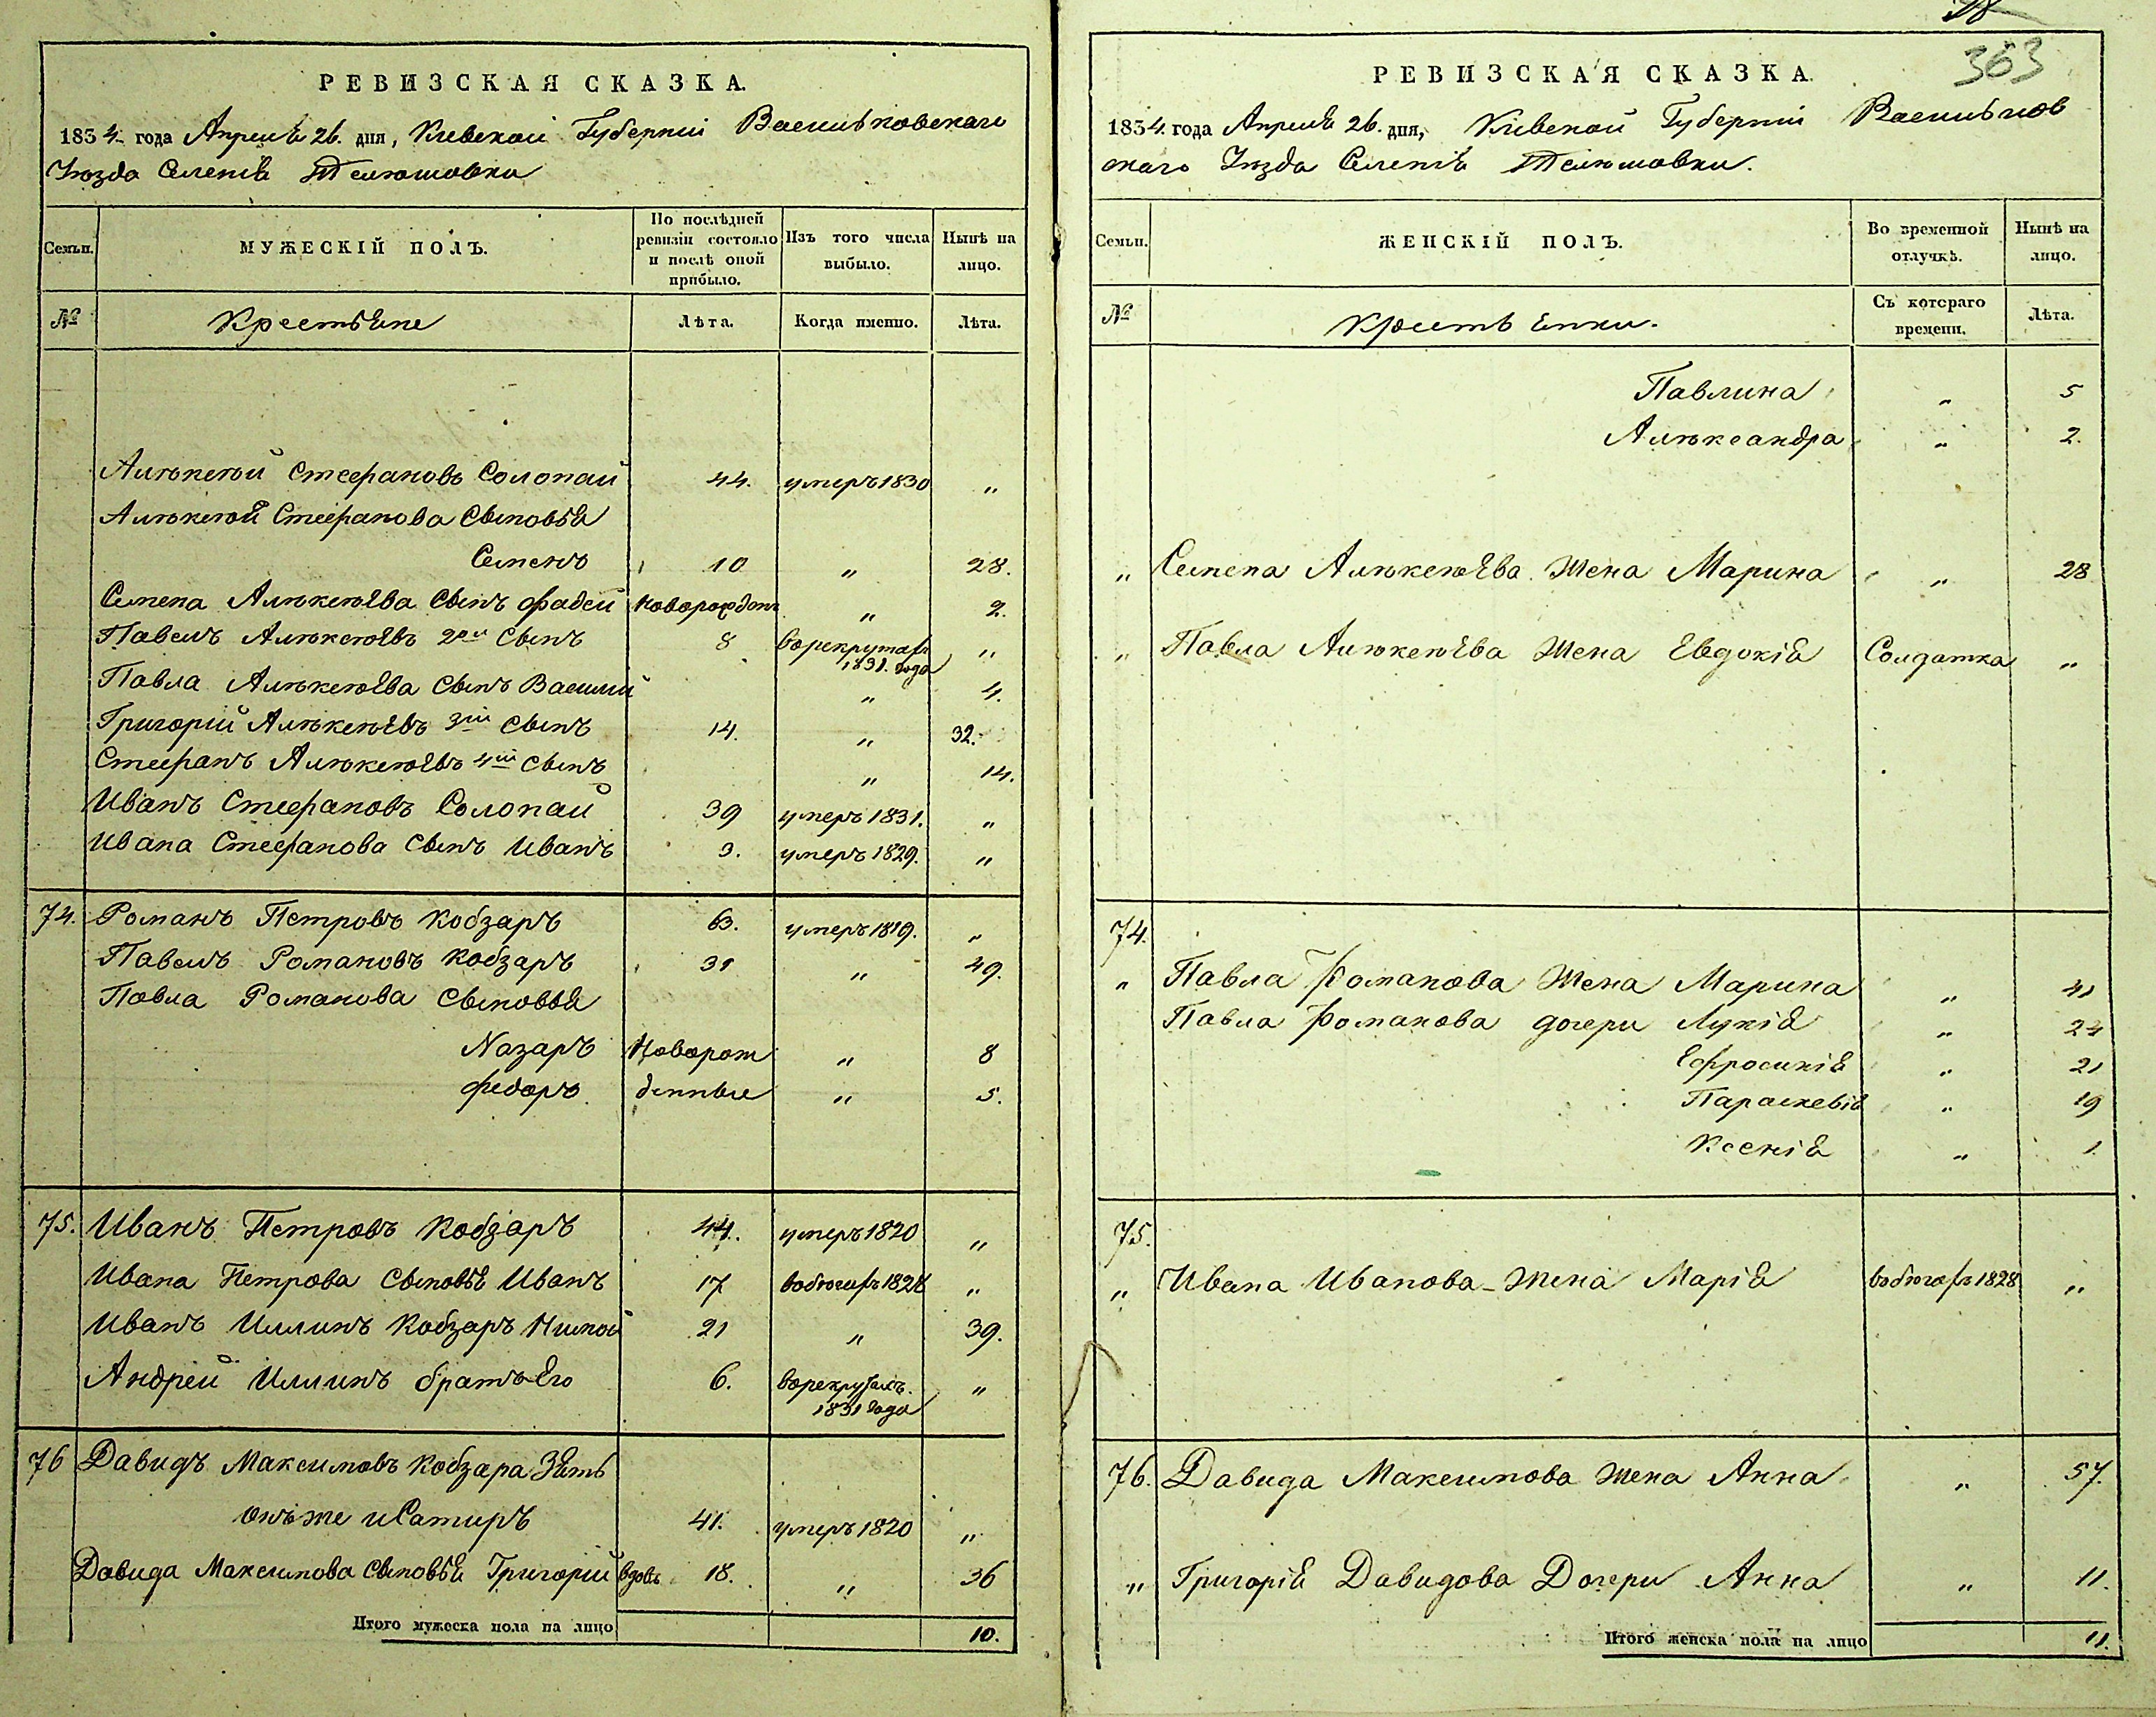 РЕВИЗСКАЯ СКАЗКА.
1834 года Апреля 26. дня, Киевской Губернии Васильковскаго
Уезда Селения Телешовки
Семьи.
МУЖЕСКІЙ ПОЛЪ.
По послѣдней ревизіи состояло и послѣ оной прибыло.
Изъ того числа выбыло.
Нынѣ на лицо.
№
Крестьяне
Лѣта.
Когда именно.
Лѣта.
Алѣксѣй Стефановъ Солопай 44. умеръ 1830 „
Алѣксѣй Стефанова Сыновья
Семенъ 10 „ 28.
Семена Алѣксѣева Сынъ Фадей новорожден „ 2.
Павелъ Алѣксѣевъ 2ой Сынъ 8 ворекрутахъ 1831. года „
Павла Алѣксѣева Сынъ Василий „ 4.
Григорій Алѣксѣевъ 3ій Сынъ 14. „ 32.
Стефанъ Алѣксѣевъ 4ій Сынъ „ 14.
Иванъ Стефановъ Солопай 39 умеръ 1831. „
Ивана Стефанова Сынъ Иванъ 3. умеръ 1829. „
74. Романъ Петровъ Кобзаръ 63. умеръ 1819. „
Павелъ Романовъ Кобзаръ 31 „ 49.
Павла Романова Сыновья
Назаръ Новорож „ 8
Федоръ денные „ 5.
75. Иванъ Петровъ Кобзаръ 44. умеръ 1820 „
Ивана Петрова Сыновья Иванъ 17 вобегахъ 1828 „
Иванъ Иллинъ Кобзаръ Нимой 21 „ 39.
Андрей Иллинъ братъ Его 6. ворекрутахъ. 1831 Года „
76 Давидъ Максимовъ Кобзара Зять
онъ же и Сатиръ 41. умеръ 1820 „
Давида Максимова Сыновья Григорий вдовъ 18. „ 36
Итого мужеска пола на лицо 10.
363
РЕВИЗСКАЯ СКАЗКА.
1834. года Апреля 26. дня, Киевской Губернии Васильков
скаго Уезда Селения Телешовки.
Семьи.
ЖЕНСКІЙ ПОЛЪ.
Во временной отлучкѣ.
Нынѣ на лицо.
№
Крестьянки.
Съ котораго времени.
Лѣта.
Павлина „ 5
Алѣксандра „ 2.
„ Семена Алѣксѣева Жена Марина „ 28
„ Павла Алѣксѣева Жена Евдокія Солдатка „
74.
„ Павла Романова Жена Марина „ 41
Павла Романова дочери Лукія „ 24
Ефросинія „ 21
Параскевія „ 19
Ксенія „ 1.
75.
„ Ивана Иванова Жена Марія вобегахъ 1828 „
76. Давида Максимова Жена Анна „ 57.
„ Григорія Давидова Дочери Анна „ 11.
Итого женска пола на лицо 11.